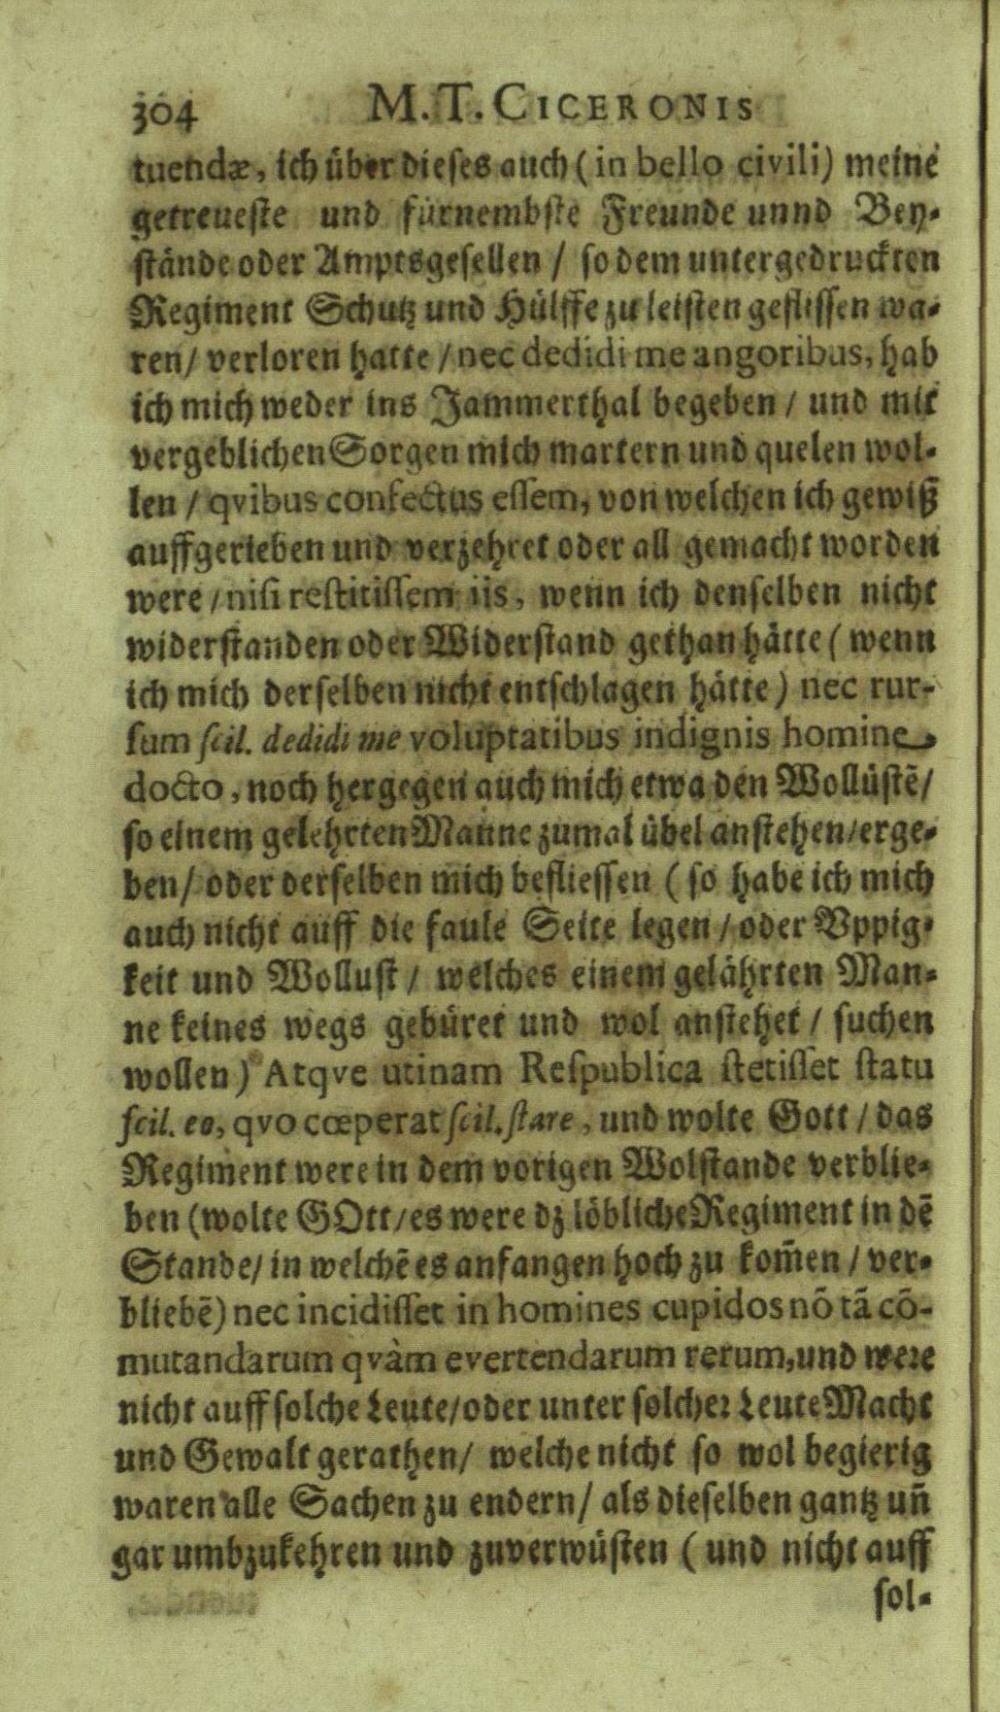 304 M. T. CICERONIS
tuendæ, ich über dieses auch (in bello civili) meine
getreueste und fürnembste Freunde unnd Bey-
stände oder Amptsgesellen / so dem untergedruckten
Regiment Schutz und Hülffe zu leisten geflissen wa-
ren / verloren hatte / nec dedidi me angoribus, hab
ich mich weder ins Jammerthal begeben / und mit
vergeblichen Sorgen mich martern und quelen wol-
len / qvibus confectus essem, von welchen ich gewiß
auffgerieben und verzehret oder all gemacht worden
were / nisi restitissem iis, wenn ich denselben nicht
widerstanden oder Widerstand gethan hätte ( wenn
ich mich derselben nicht entschlagen hätte ) nec rur-
sum scil. dedidi me voluptatibus indignis homine
docto, noch hergegen auch mich etwa den Wollüstẽ /
so einem gelehrten Manne zumal übel anstehen / erge-
ben / oder derselben mich befliessen ( so habe ich mich
auch nicht auff die faule Seite legen / oder Vppig-
keit und Wollust / welches einem gelährten Man-
ne keines wegs gebüret und wol anstehet / suchen
wollen ) Atqve utinam Respublica stetisset statu
scil. eo, qvo cœperat scil. stare, und wolte Gott / das
Regiment were in dem vorigen Wolstande verblie-
ben (wolte GOtt / es were dz löbliche Regiment in dẽ
Stande / in welchẽ es anfangen hoch zu kom̃en / ver-
bliebẽ) nec incidisset in homines cupidos nõ tã cõ-
mutandarum qvàm evertendarum rerum, und were
nicht auff solche Leute / oder unter solcher Leute Macht
und Gewalt gerathen / welche nicht so wol begierig
waren alle Sachen zu endern / als dieselben gantz uñ
gar umbzukehren und zuverwüsten ( und nicht auff
sol-